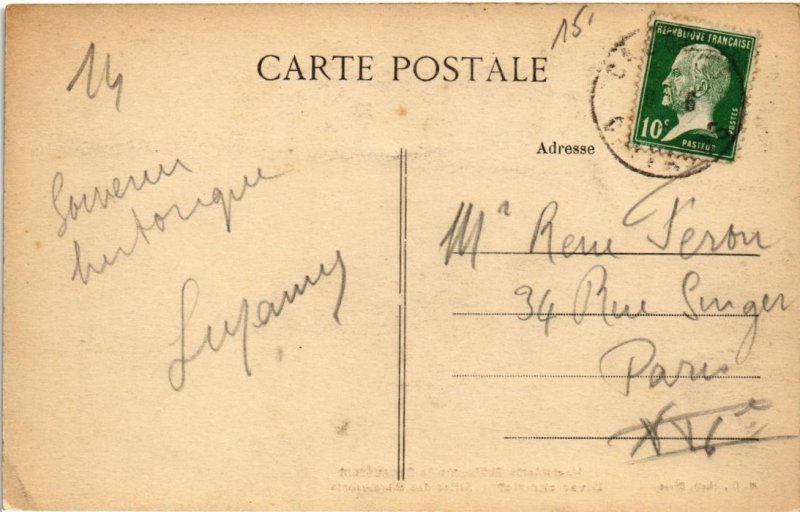 14
15
CARTE POSTALE
REPUBLIQUE FRANÇAISE
10c
POSTES
PASTEUR
Adresse
Souvenir
historique
Mr Rene Feron
34 Rue Singer
Paris
XVIe